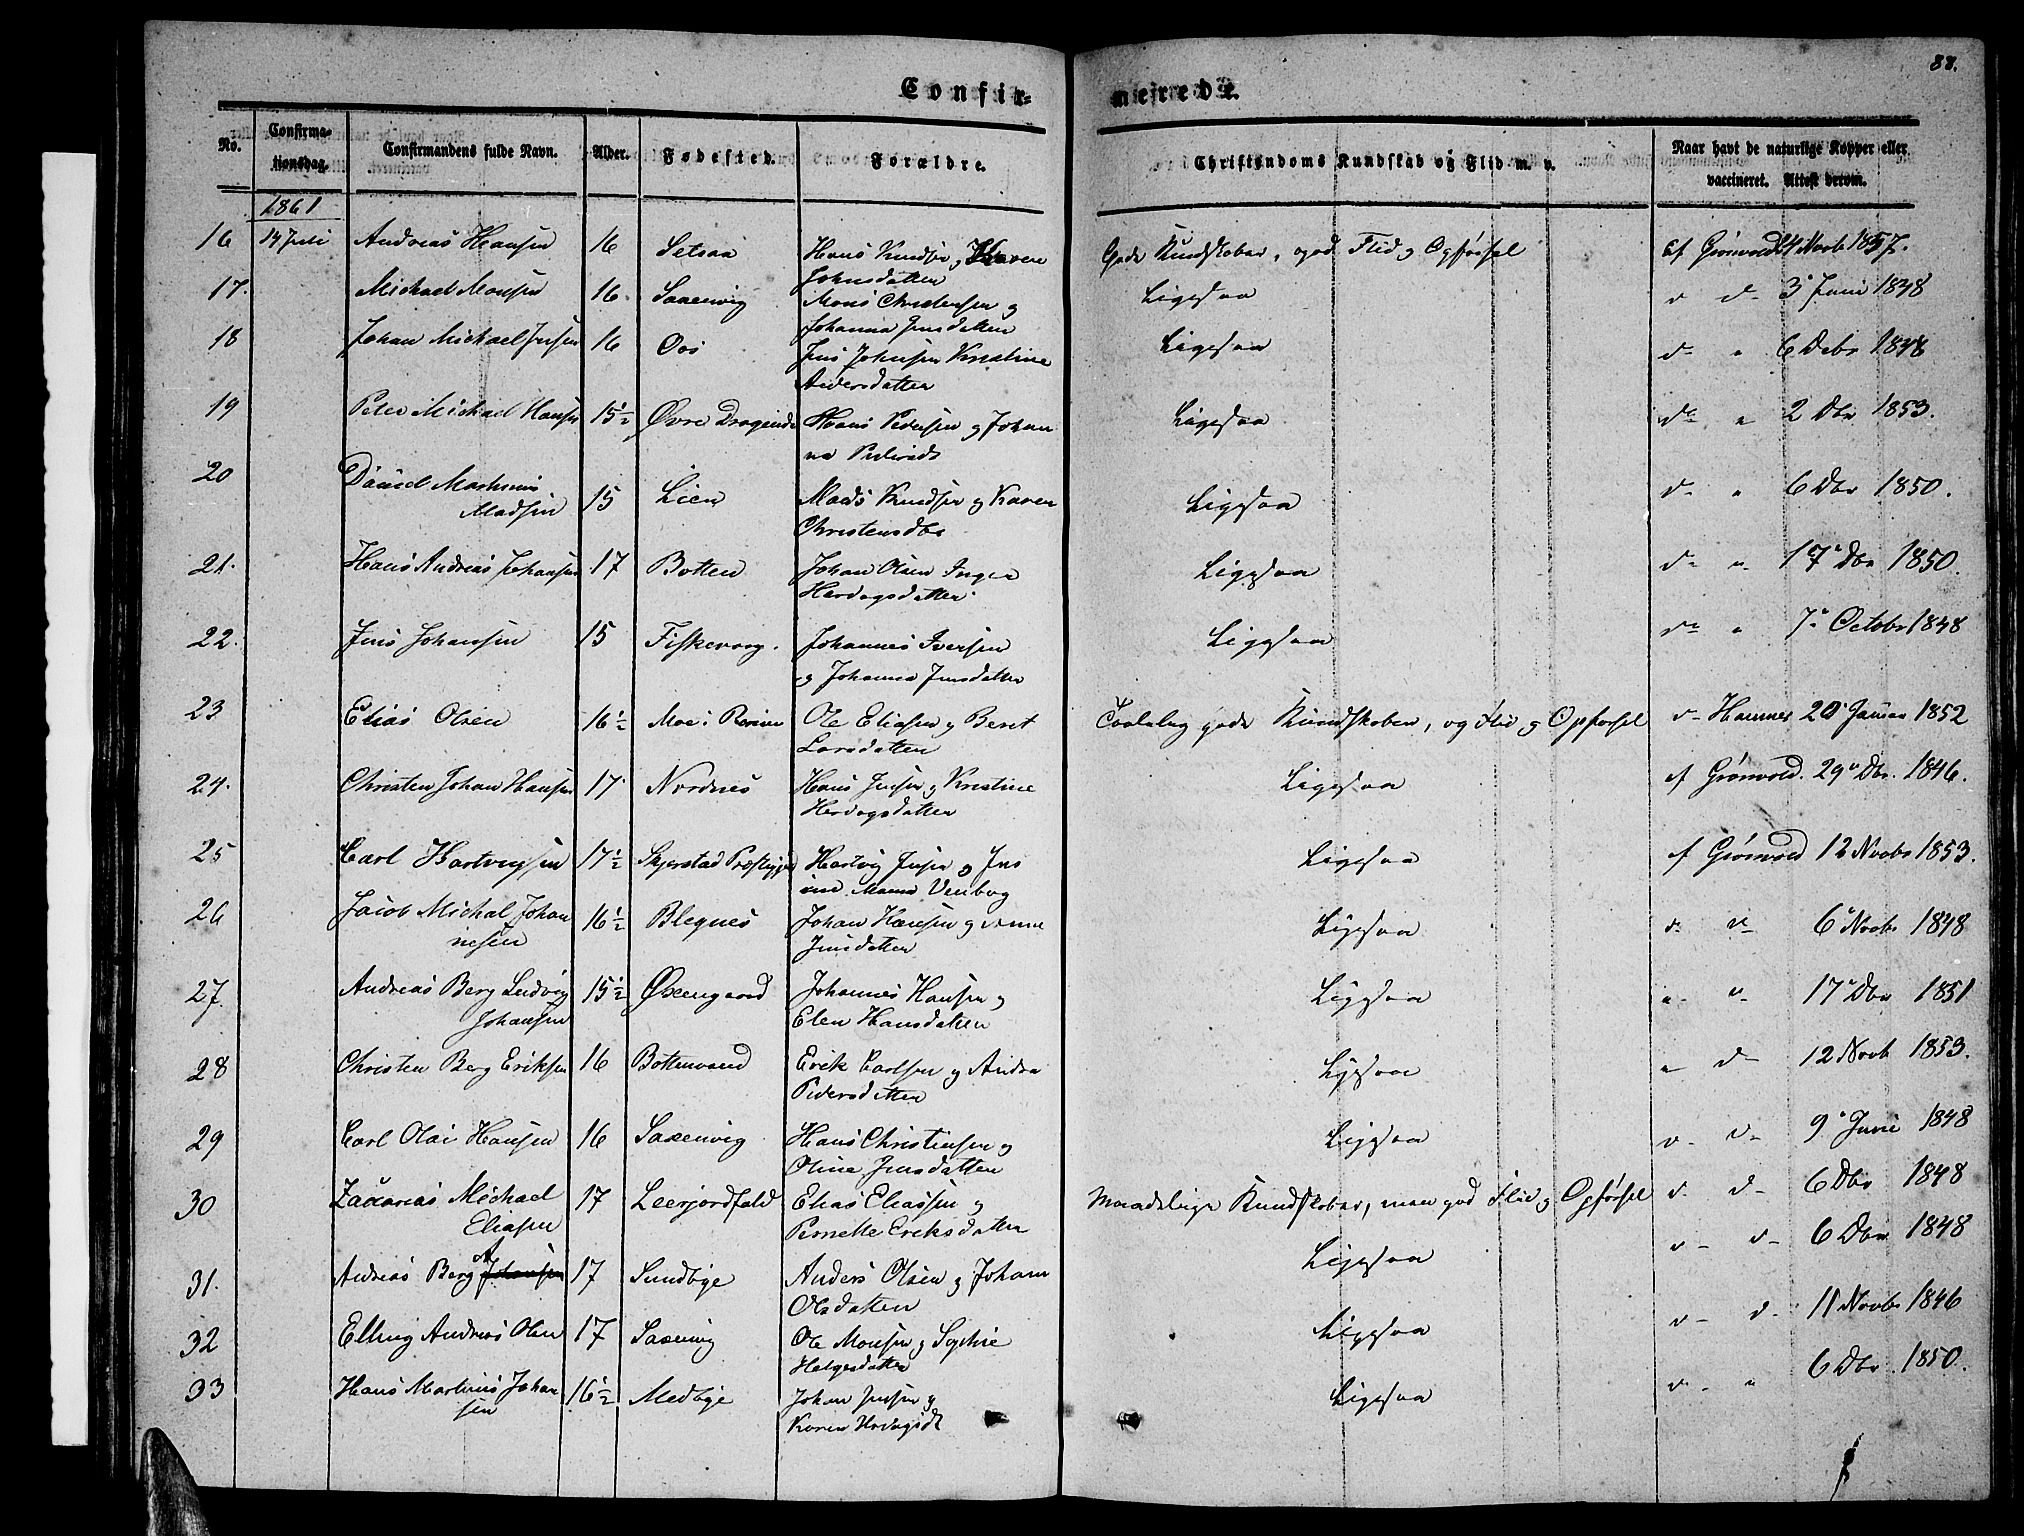 88.
Confir-
merede.
No.
Confirma-
tionsdag.
Confirmandens fulde Navn.
Alder.
Fødested.
Forældre.
Christendoms Kundskab og Flid m. v.
Naar havt de naturlige Kopper eller
vaccineret. Attest derom.
1861
16 14 Juli Andreas Hansen 16 Setsaa Hans Knudsen og Karen
Johnsdatter
Gode Kundskaber, god Flid og Opførsel af Grønvold 24 Novb 1857.
17. Michael Monsen 16 Saxenvig Mons Christensen og
Johanna Jensdatter
Ligesaa 3 Juni 1848
18 Johan Michael Jensen 16 Oos Jens Johnsen Kristine
Andersdatter
Ligesaa 6 Debr 1848
19 Peter Michael Hansen 15½ Øvre Drageide Hans Pedersen og Johan
na Pedersd
Ligesaa 2 Dbr 1853.
20 Daniel Mathias
Madsen 15 Lien Mads Knudsen og Karen
Christensdtr
Ligesaa 6 Dbr 1850.
21. Hans Andreas Johansen 17 Botten Johan Olsen Inger
Hervagsdatter
Ligesaa 17 Dbr 1850.
22. Jens Johansen 15 Fiskevaag. Johannes Iversen
og Johanna Jensdatter
Ligesaa 7 Octobr 1848
23 Elias Olsen 16½ Moe i Ranen Ole Eliasen og Beret
Larsdatter
Taalelig gode Kundskaber, og Flid og Opførsel Hanner 20 Januar 1852
24. Christen Johan Hansen 17 Nordnes Hans Jensen og Kristine
Hervagsdatter
Ligesaa af Grønvold. 29 Dbr. 1846.
25 Carl Hartvigsen 17½ Skjerstad Præstegje Hartvig Jensen og Jen
sine Maria Venbog
Ligesaa af Grønvold 12 Novbr 1853.
26 Jacob Michal Johan
nesen 16½ Blegnes Johan Hansen og Anne
Jensdatter
Ligesaa 6 Novbr 1848
27. Andreas Berg Ludvig
Johansen 15½ Øxengaard Johannes Hansen og
Elen Hansdatter
Ligesaa 17 Dbr 1851
28 Christen Berg Eriksen 16 Bottenvand Erik Carlsen og Andrea
Pedersdatter
Ligesaa 12 Novb 1853.
29 Carl Olai Hansen 16 Saxenvig Hans Christensen og
Oline Jensdatter
Ligesaa 9 Juni 1848
30 Zacarias Michael
Eliasen 17 Leerjordfald Elias Eliassen og
Pernelle Eriksdatter
Maadelige Kundskaber, men god Flid og Opførsel 6 Dbr 1848
31. Andreas Berg A Johansen 17 Sundbye Anders Olsen og Johan
Olsdatter
Ligesaa 6 Dbr 1848
32 Elling Andreas Olsen 17 Saxenvig Ole Monsen og Sophie
Helgesdatter
Ligesaa 11 Novbr 1846
33 Hans Martinus Johan
sen 16½ Medbye Johan Jensen og
Karen Hervagsdt
Ligesaa 6 Dbr. 1850.